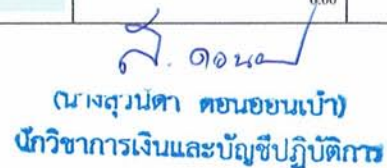 0.00
(นางสุวนิดา ดอนอ่อนเบ้า)
นักวิชาการเงินและบัญชีปฏิบัติการ